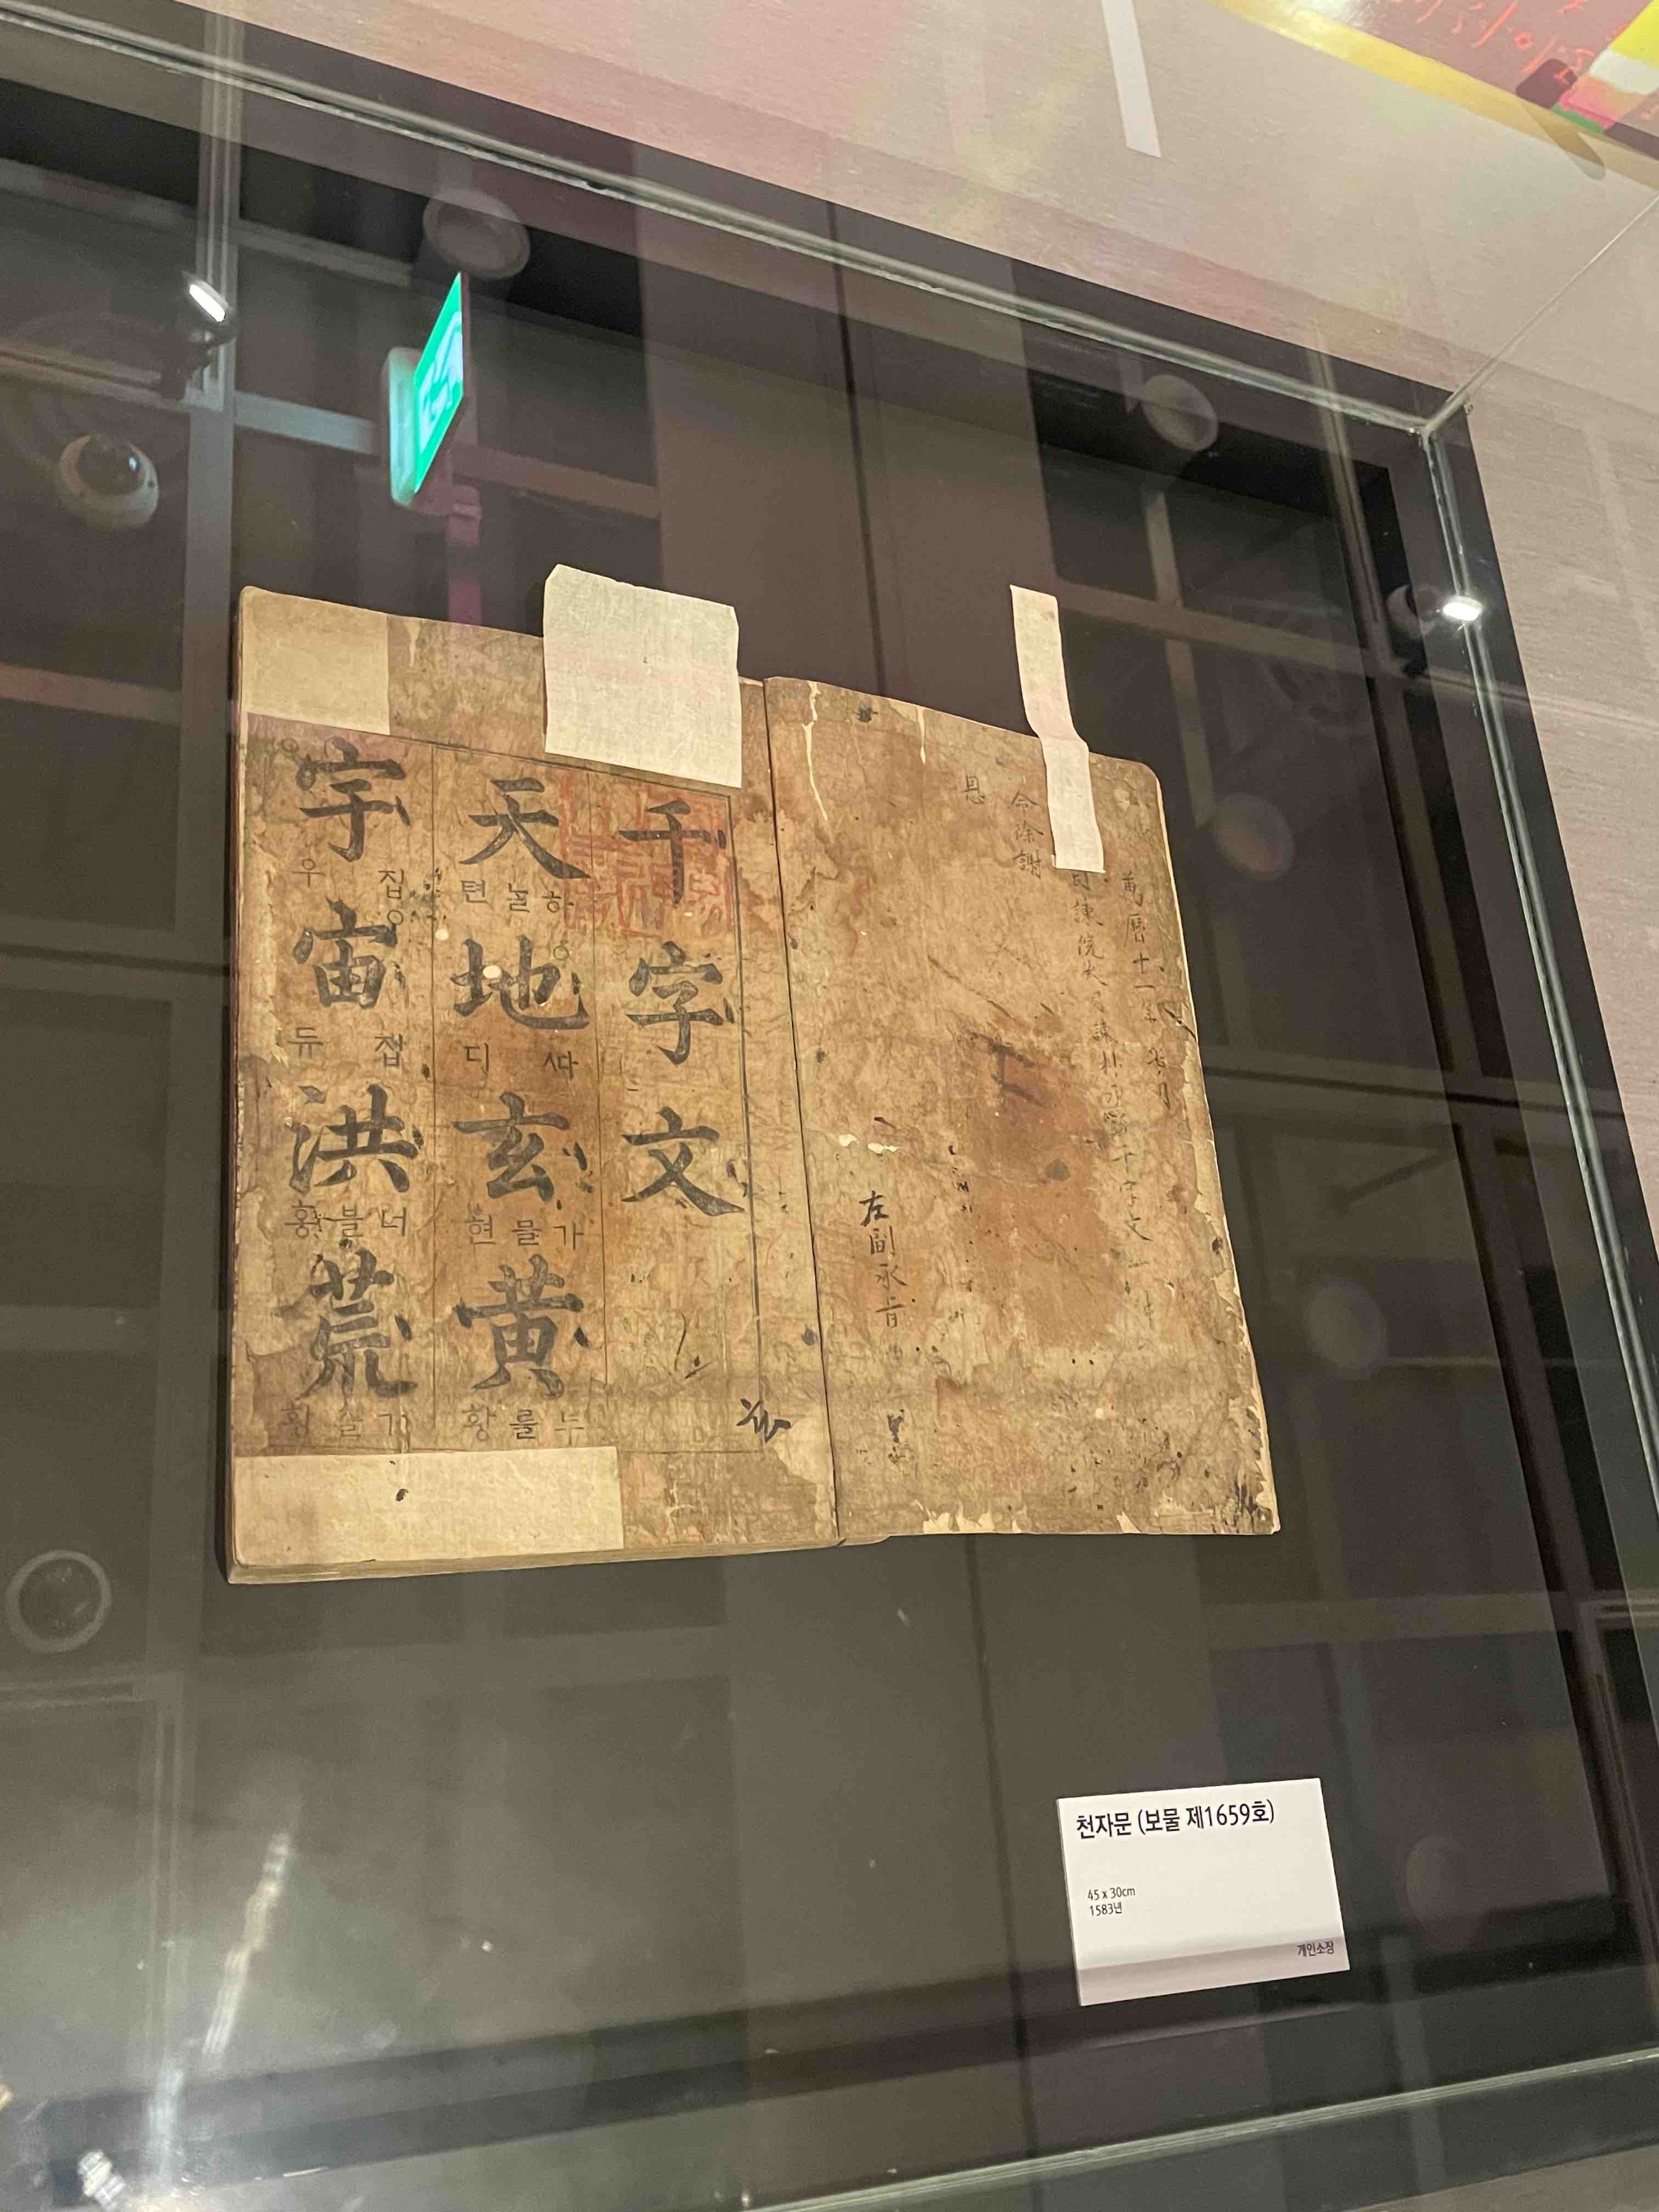 萬曆十一年
司諫院大司諫朴 千字文一件
命除謝
恩
左副承旨
千字文
天 하ᄂᆞᆯ 텬 地 ᄯᅡ 디 玄 가믈 현 黃 누를 황
宇 집 우 宙 집 듀 洪 너블 홍 荒 거츨 황
천자문 (보물 제1659호)
45 x 30cm
1583년
개인소장